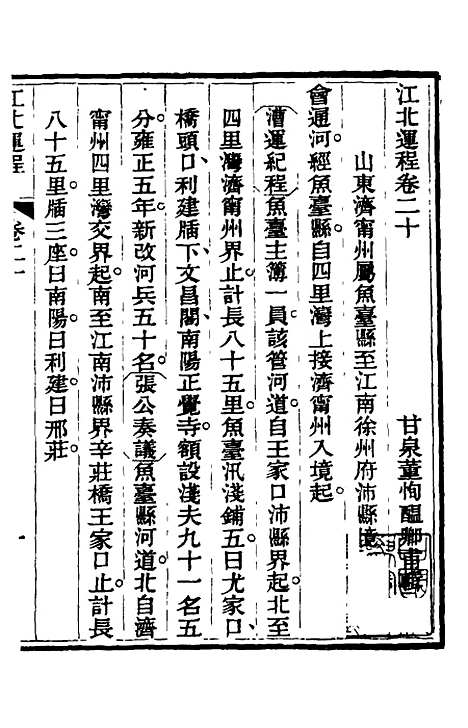 江北運程卷二十
甘泉董恂醞卿甫輯
山東濟甯州屬魚臺縣至江南徐州府沛縣境
會通河經魚臺縣自四里灣上接濟甯州入境起
漕運紀程魚臺主簿一員該管河道自王家口沛縣界起北至
四里灣濟甯州界止計長八十五里魚臺汛淺鋪五日尤家口
橋頭口利建牐下文昌閣南陽正覺寺額設淺夫九十一名五
分雍正五年新改河兵五十名張公奏議魚臺縣河道北自濟
甯州四里灣交界起南至江南沛縣界辛莊橋王家口止計長
八十五里牐三座曰南陽曰利建曰邢莊
江北運程
卷二十